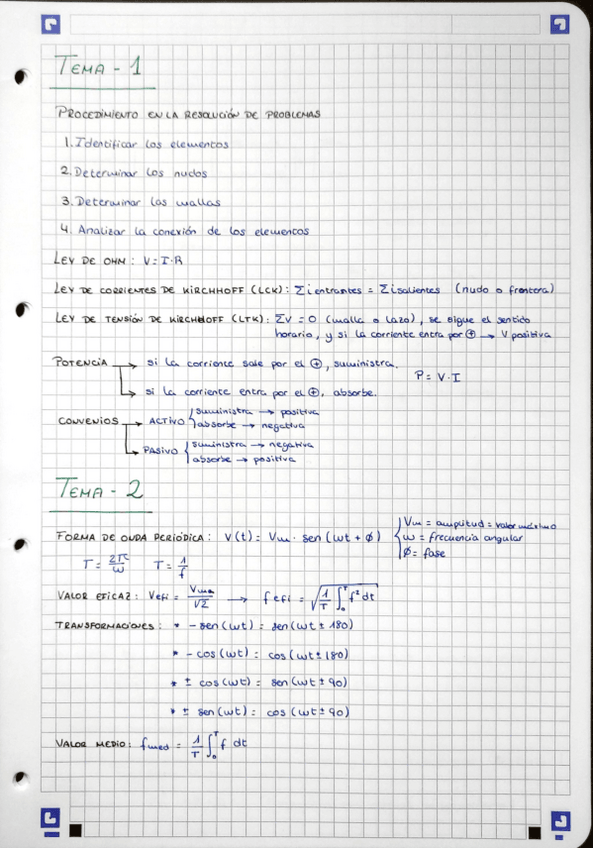 TEMA - 1
PROCEDIMIENTO EN LA RESOLUCIÓN DE PROBLEMAS
1. Identificar los elementos
2. Determinar los nudos
3. Determinar las mallas
4. Analizar la conexión de los elementos
LEY DE OHM: V = I·R
LEY DE CORRIENTES DE KIRCHHOFF (LCK): Σi entrantes = Σi salientes (nudo o frontera)
LEY DE TENSIÓN DE KIRCHHOFF (LTK): ΣV = 0 (malla o lazo), se sigue el sentido
horario, y si la corriente entra por ⊕ → V positiva
POTENCIA → si la corriente sale por el ⊕, suministra.
P = V·I
↳ si la corriente entra por el ⊕, absorbe.
CONVENIOS → ACTIVO { suministra → positiva
absorbe → negativa
↳ PASIVO { suministra → negativa
absorbe → positiva
TEMA - 2
FORMA DE ONDA PERIÓDICA: V(t) = Vm · sen (wt + ϕ) { Vm = amplitud = valor máximo
w = frecuencia angular
ϕ = fase
T = 2π/w T = 1/f
VALOR EFICAZ: Vefi = Vmax/√2 → fefi = √(1/T ∫₀ᵀ f² dt)
TRANSFORMACIONES: * - sen (wt) = sen (wt ± 180)
* - cos (wt) = cos (wt ± 180)
* ± cos (wt) = sen (wt ± 90)
* ± sen (wt) = cos (wt ± 90)
VALOR MEDIO: fmed = 1/T ∫₀ᵀ f dt